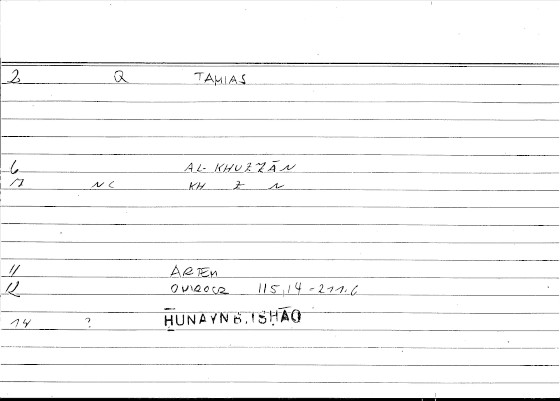 2 Q TAMIAS
6 AL-KHUZZĀN
17 NC KH Z N
11 ARTEM
12 115,14-211.6
14 ? HUNAYN B. ISHAQ